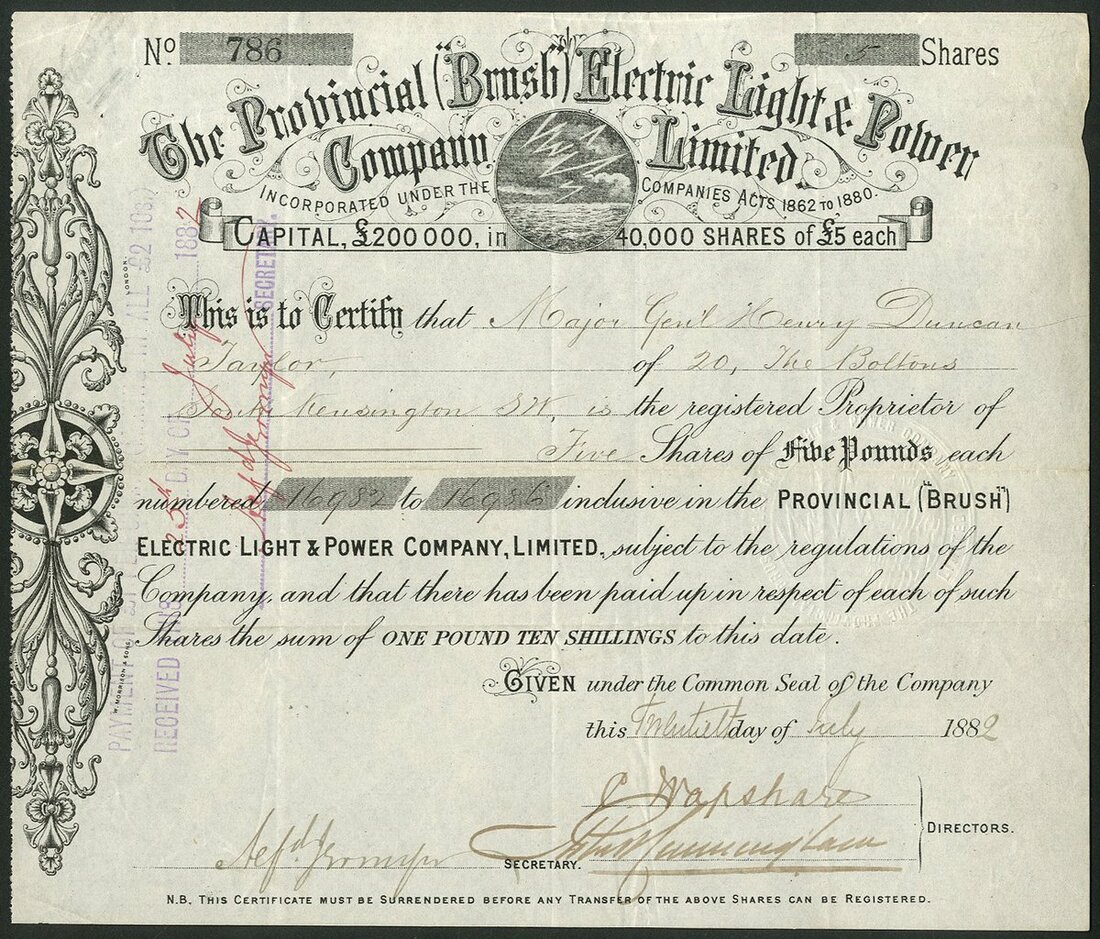 No. 786 5 Shares
The Provincial ("Brush") Electric Light & Power
Company Limited.
INCORPORATED UNDER THE COMPANIES ACTS 1862 TO 1880.
CAPITAL, £200 000, in 40,000 SHARES of £5 each
This is to Certify that Major Genl Henry Duncan
Taylor, of 20, The Boltons
South Kensington SW. is the registered Proprietor of
Five Shares of Five Pounds each
numbered 16982 to 16986 inclusive in the PROVINCIAL ("BRUSH")
ELECTRIC LIGHT & POWER COMPANY, LIMITED, subject to the regulations of the
Company, and that there has been paid up in respect of each of such
Shares the sum of ONE POUND TEN SHILLINGS to this date.
GIVEN under the Common Seal of the Company
this Twentieth day of July 1882
C Wapshare
Cunningham
DIRECTORS.
SECRETARY.
N.B. THIS CERTIFICATE MUST BE SURRENDERED BEFORE ANY TRANSFER OF THE ABOVE SHARES CAN BE REGISTERED.
W. MORRISON & SONS, LONDON
PAYMENT ALL £2 10s.
RECEIVED 25th DAY OF July 1882
SECRETARY.